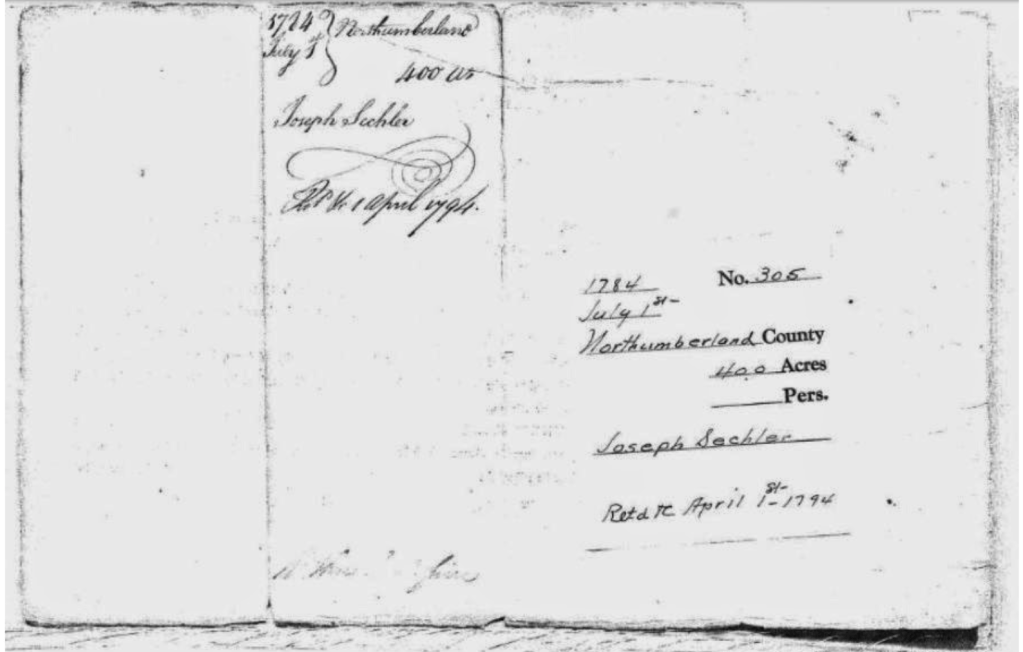 1784 } Northumberland
July 1st
400 as
Joseph Sechler
Ret'd &c 1 April 1794.
1784 No. 305
July 1st
Northumberland County
400 Acres
Pers.
Joseph Sechler
Retd &c April 1st 1794